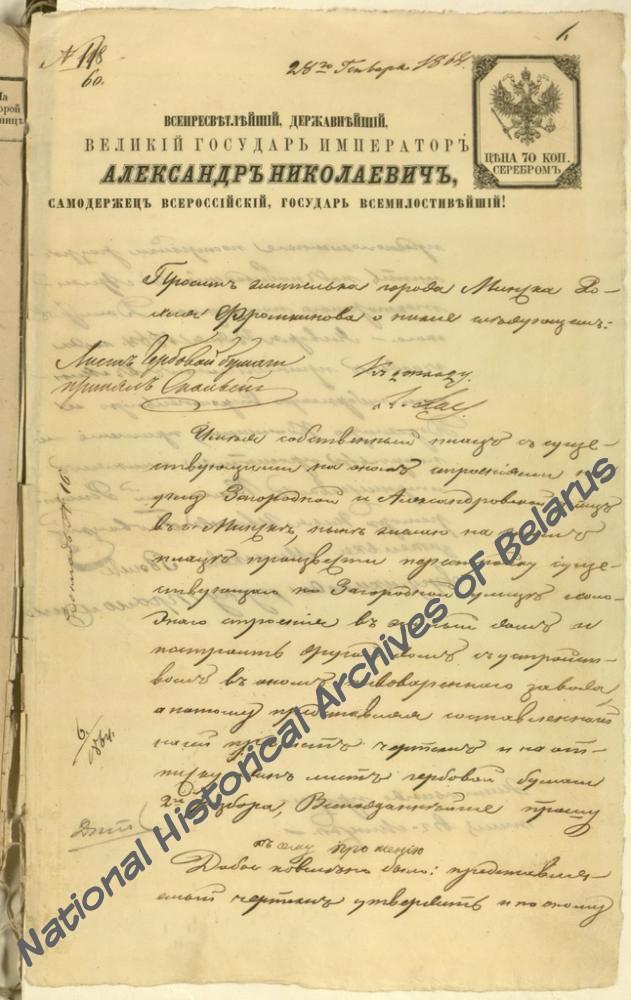 № 118
60.
28го Генваря 1864.
1.
ВСЕПРЕСВѢТЛѢЙШІЙ, ДЕРЖАВНѢЙШІЙ,
ВЕЛИКІЙ ГОСУДАРЬ ИМПЕРАТОРЪ
АЛЕКСАНДРЪ НИКОЛАЕВИЧЪ,
САМОДЕРЖЕЦЪ ВСЕРОССІЙСКІЙ, ГОСУДАРЬ ВСЕМИЛОСТИВѢЙШІЙ!
ЦѢНА 70 КОП.
СЕРЕБРОМЪ
Проситъ жителька города Минска Ро-
Фрумкинова о ниже слѣдующемъ:
Листъ гербовой бумаги
принялъ
Къ докладу.
Имѣя собственный плацъ съ суще-
ствующимъ на ономъ строеніемъ на
углу Загородной и Александровской улицъ
въ г. Минскѣ, нынѣ желаю на
плацѣ произвести перестройку суще-
ствующаго по Загородной улицѣ холо-
днаго строенія въ жилый домъ и
построить другой домъ съ устройст-
вомъ въ ономъ пивовареннаго завода,
а потому представляя составленный
на сей предметъ чертежъ и на от-
одинъ листъ гербовой бумаги
2го разбора, Всеподданнѣйше прошу
къ сему прошенію
Дабы повелѣно было: представляе-
мый чертежъ утвердить и по оному
National Historical Archives of Belarus